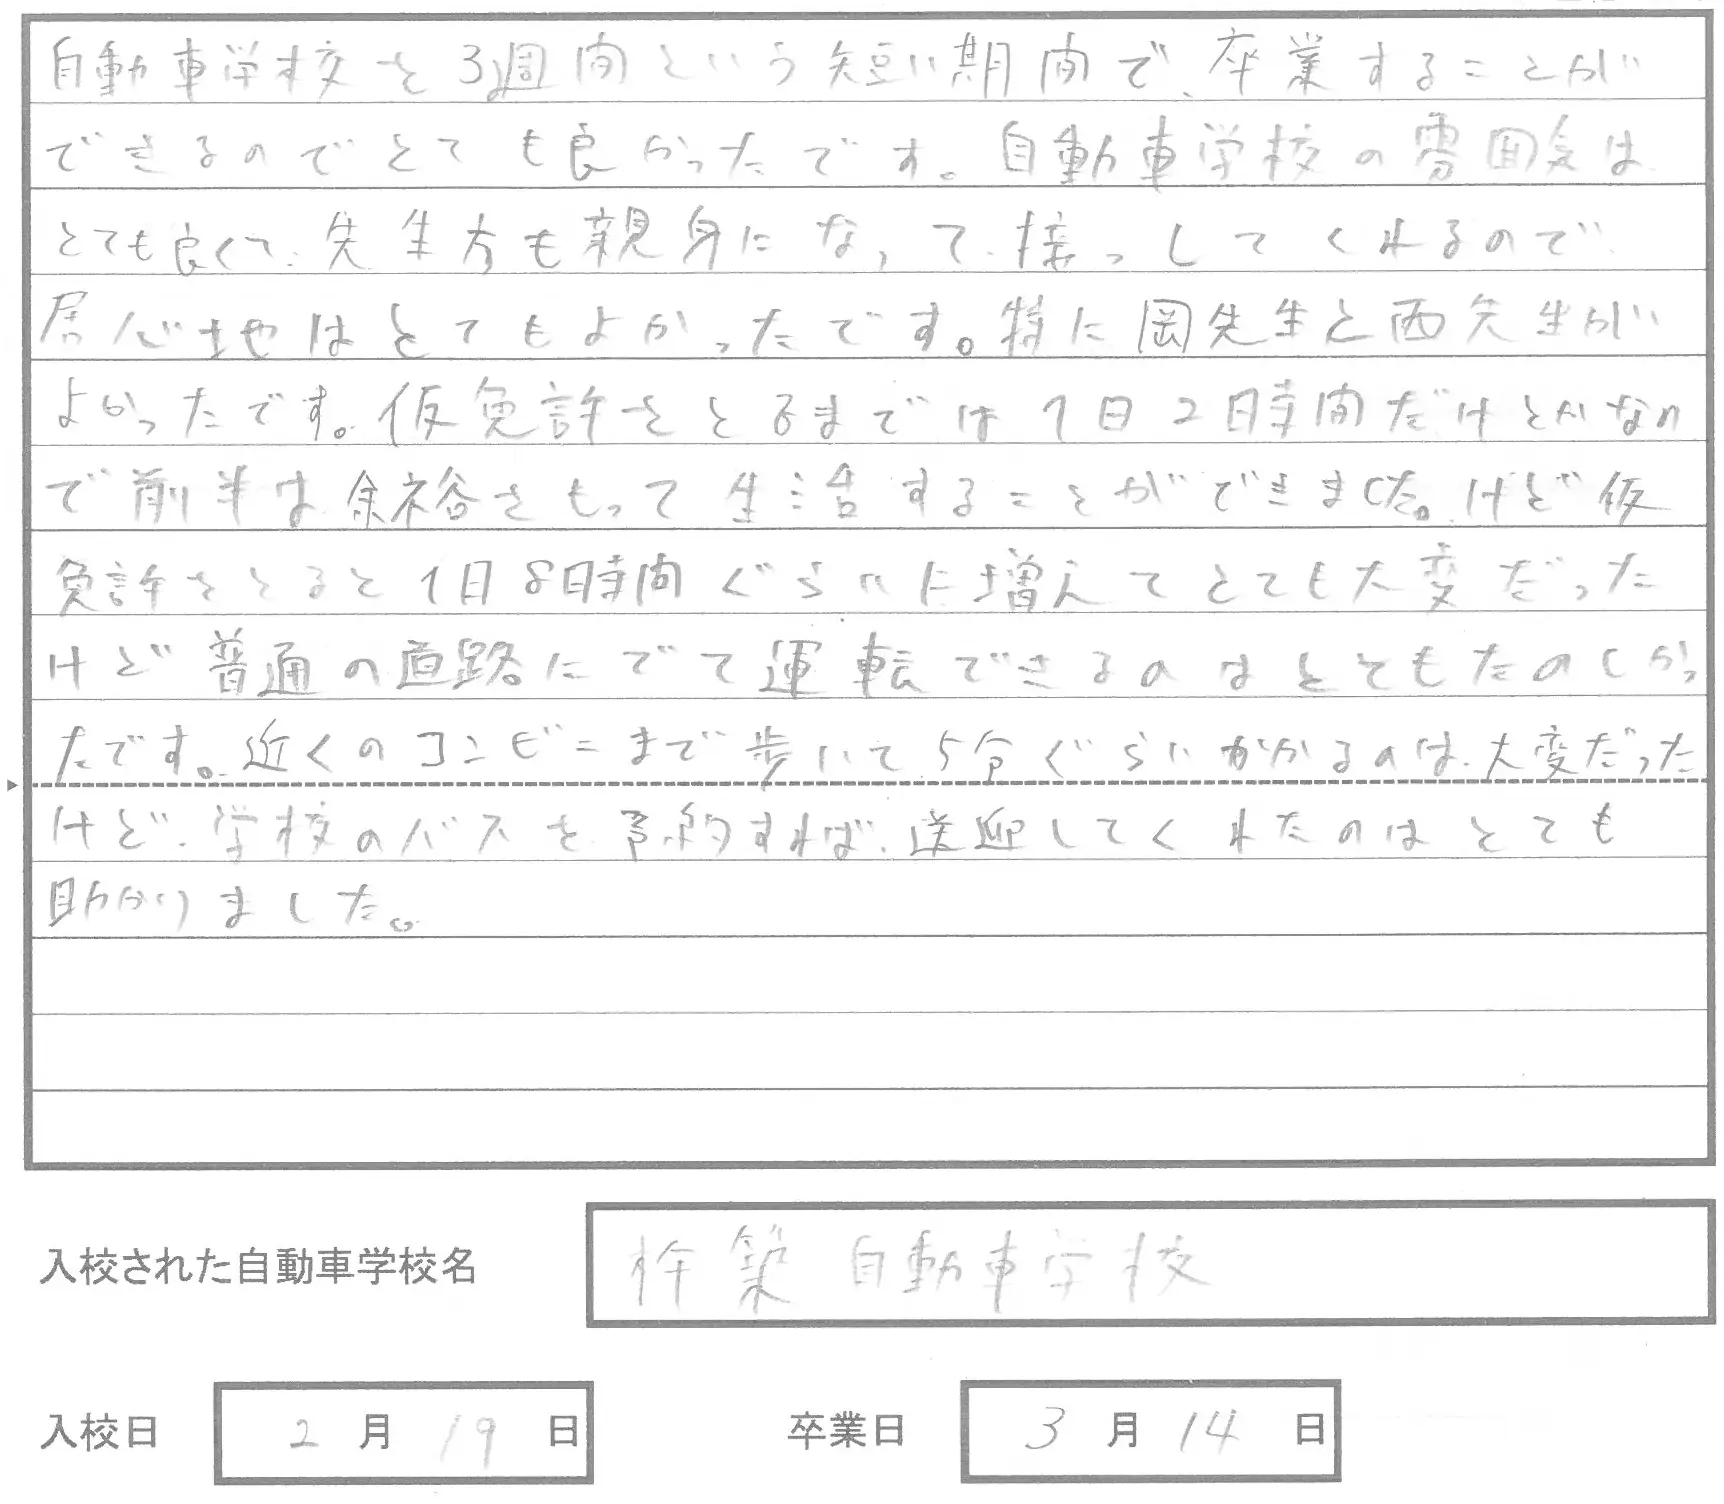 自動車学校を3週間という短い期間で、卒業することが
できるのでとても良かったです。自動車学校の雰囲気は
とても良くて、先生方も親身になって、接っしてくれるので
居心地はとてもよかったです。特に岡先生と西先生が
よかったです。仮免許をとるまでは1日2時間だけとかなの
で前半は余裕をもって生活することができました。けど仮
免許をとると1日8時間ぐらいに増えてとても大変だった
けど普通の道路にでて運転できるのはとてもたのしかっ
たです。近くのコンビニまで歩いて5分ぐらいかかるのは、大変だった
けど、学校のバスを予約すれば、送迎してくれたのはとても
助かりました。
入校された自動車学校名 杵築自動車学校
入校日 2月19日 卒業日 3月14日